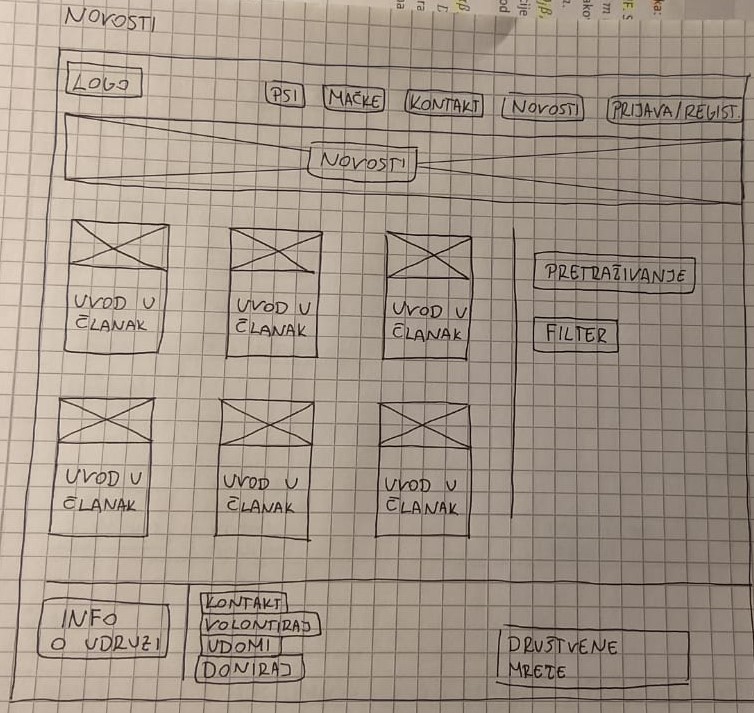 NOVOSTI
LOGO
PSI MAČKE KONTAKT NOVOSTI PRIJAVA/REGIST.
NOVOSTI
UVOD U
ČLANAK
UVOD U
ČLANAK
UVOD U
ČLANAK
PRETRAŽIVANJE
FILTER
UVOD U
ČLANAK
UVOD U
ČLANAK
UVOD U
ČLANAK
INFO
O UDRUZI
KONTAKT
VOLONTIRAJ
UDOMI
DONIRAJ
DRUŠTVENE
MREŽE